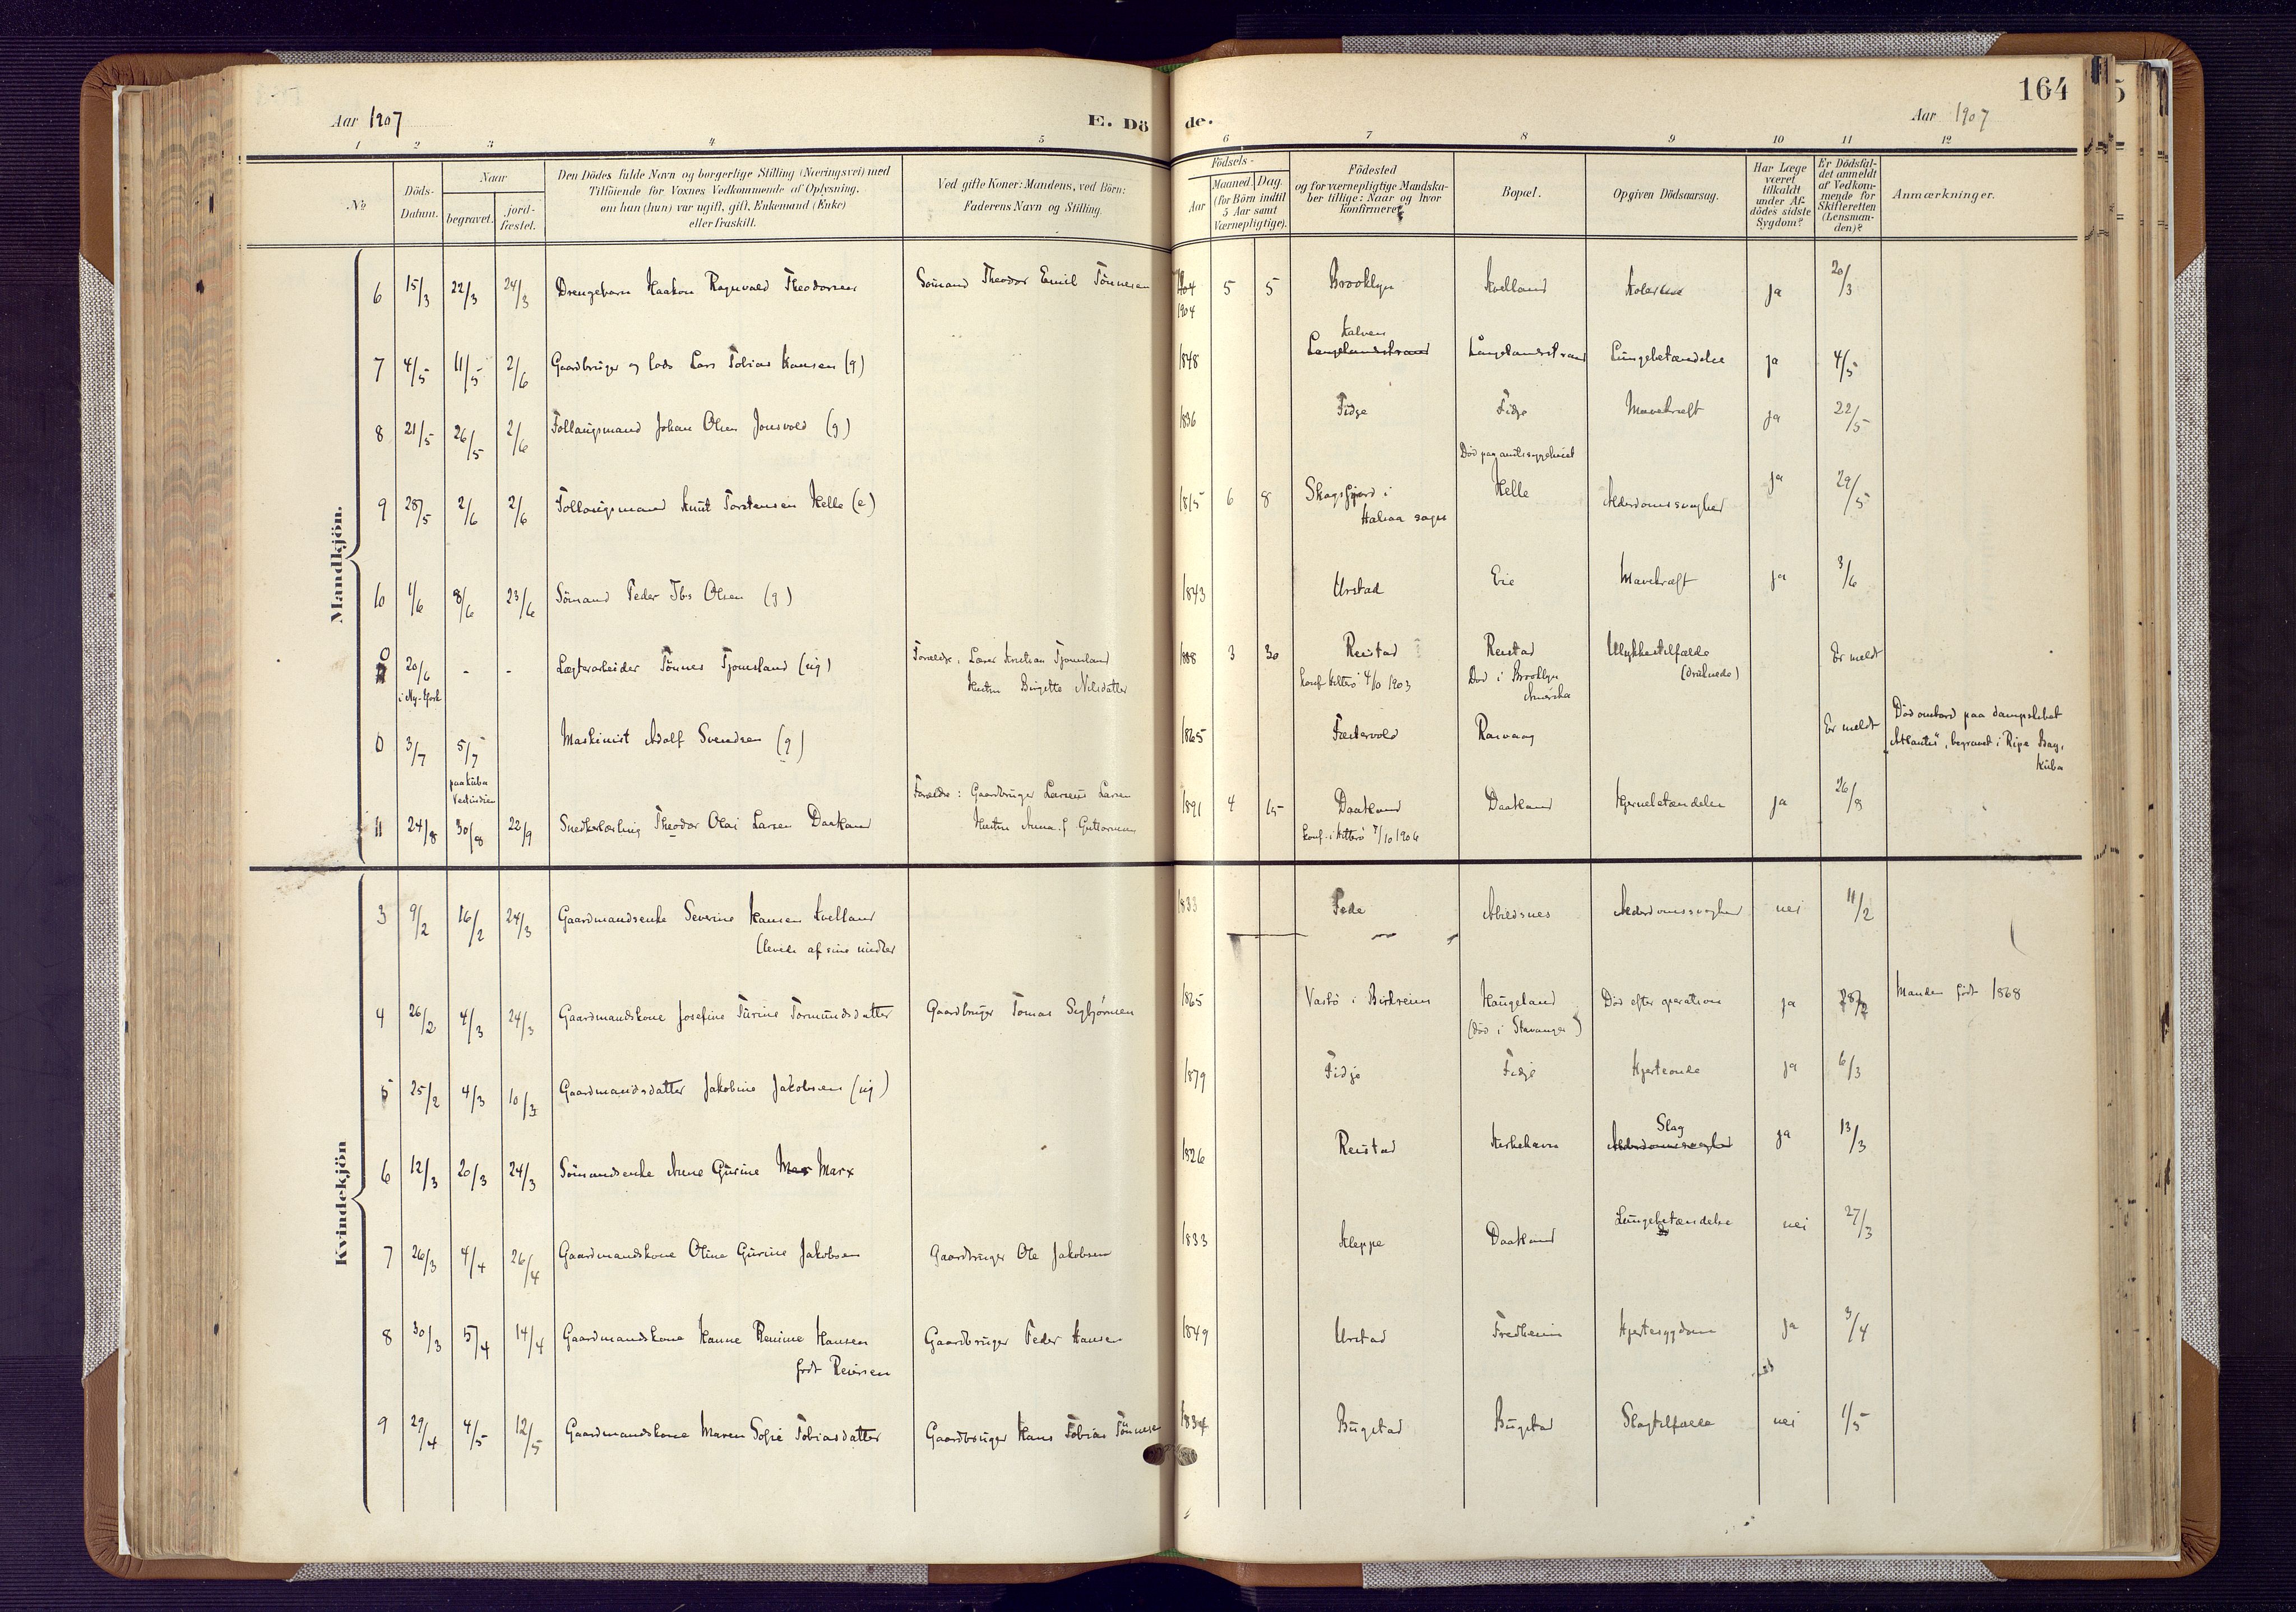 164
Aar 1907
E. Döde.
Aar 1907
1 2 3 4 5 6 7 8 9 10 11 12
No
Döds-Datum.
Naar
begravet.
jord-fæstet.
Den Dödes fulde Navn og borgerlige Stilling (Næringsvei) med
Tilföiende for Voxnes Vedkommende af Oplysning,
om han (hun) var ugift, gift, Enkemand (Enke)
eller fraskilt.
Ved gifte Koner: Mandens, ved Börn:
Faderens Navn og Stilling.
Födsels-
Aar
Maaned. Dag.
(for Börn indtil
5 Aar samt
Værnepligtige).
Födested
og for værnepligtige Mandska-
ber tillige: Naar og hvor
Konfirmeret
Bopæl.
Opgiven Dödsaarsag.
Har Læge
været
tilkaldt
under Af-
dödes sidste
Sygdom?
Er Dödsfal-
det anmeldt
af Vedkom-
mende for
Skifteretten
(Lensman-
den)?
Anmærkninger.
Mandkjön.
6 15/3 22/3 24/3 Drengebarn Haakon Ragnvald Theodorsen Sömand Theodor Emil Tönnesen 1904 5 5 Brooklyn Kvelland ja 20/3
7 4/5 11/5 2/6 Gaardbruger og lods Lars Tobias Hansen (g) 1848 Langelandsstrand Langelandsstrand Lungebetændelse ja 4/5
8 21/5 26/5 2/6 Follaugsmand Johan Olsen Jonsvold (g) 1836 Fidje Fidje Mavekræft ja 22/5
Död paa amtssygehuset
9 28/5 2/6 2/6 Follaugsmand Knut Torstensen Helle (e) 1815 6 8 Skogsfjord i Helle Alderdomssvaghed ja 29/5
Halsaa sogn
10 1/6 8/6 23/6 Sömand Peder Tbs Olsen (g) 1843 Urstad Eie Mavekræft ja 3/6
0 20/6 - - Lægterarbeider Tönnes Tjomsland (ug) Forældre: Lærer Kristian Tjomsland 1888 3 30 Reistad Reistad Ulykkestilfælde Er meldt
i Ny-York Hustru Birgitte Nilsdatter konf. 4/10 1903 Död i Brooklyn (druknede)
Amerika
0 3/7 5/7 Maskinist Adolf Svendsen (g) 1865 Fæstervold Rasvaag Er meldt Död ombord paa dampskibet
paa Kuba "Atlantis", begravet i Ripa Bay,
Vestindien Kuba
11 24/8 30/8 22/9 Snedkerlærling Theodor Olai Larsen Daatland Forældre: Gaardbruger Larsens Larsen 1891 4 15 Daatland Daatland Hjernebetændelse ja 26/8
Hustru Anna f. Guttormsen konf. i Hitterö 7/10 1906
Kvindekjön
3 9/2 16/2 24/3 Gaardmandsenke Severine Hansen Kvelland 1833 Fede Abelsnes Alderdomssvaghed nei 11/2
(levede af sine midler
4 26/2 4/3 24/3 Gaardmandskone Josefine Turine Tormundsdatter Gaardbruger Tomas Sigbjörnsen 1865 Vasbö i Birkreim Haugeland Död efter operation ja 28/2 Manden födt 1868
(död i Stavanger)
5 25/2 4/3 10/3 Gaardmandsdatter Jakobine Jakobsen (ug) 1879 Fidje Fidje Hjerteonde ja 6/3
6 12/3 20/3 24/3 Sömandsenke Anne Gurine Marx 1826 Reistad Kirkehavn Slag ja 13/3
Alderdomssvaghed
7 26/3 4/4 26/4 Gaardmandskone Oline Gurine Jakobsen Gaardbruger Ole Jakobsen 1833 Kleppe Daatland Lungebetændelse nei 27/3
8 30/3 5/4 14/4 Gaardmandskone Hanne Reinine Hansen Gaardbruger Peder Hansen 1849 Urstad Fredheim Hjertesygdom ja 3/4
födt Reiersen
9 29/4 4/5 12/5 Gaardmandskone Maren Sofie Tobiasdatter Gaardbruger Hans Tobias Tönnesen 1834 Bugstad Bugstad Slagtilfælde nei 1/5